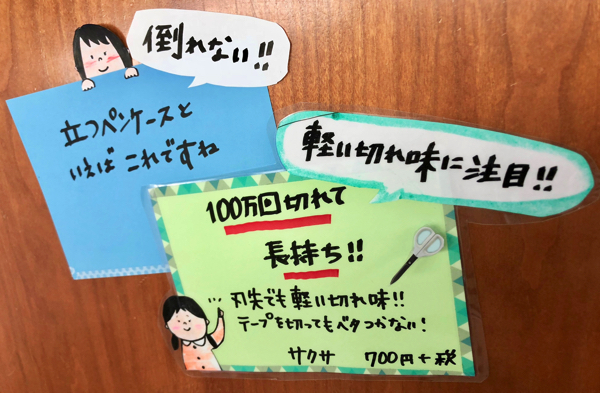 倒れない!!
立つペンケースと
いえば これですね
軽い切れ味に注目!!
100万回切れて
長持ち!!
刃先でも軽い切れ味!!
テープを切ってもベタつかない!
サクサ 700円+税